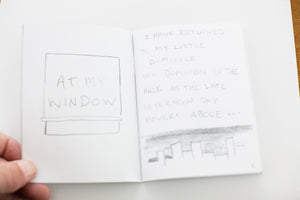 AT MY
WINDOW
I HAVE RETURNED
TO MY LITTLE
DOMICILE
MY DOMINION IN THE
AS THE LATE
AFTERNOON SKY
HOVERS ABOVE ...